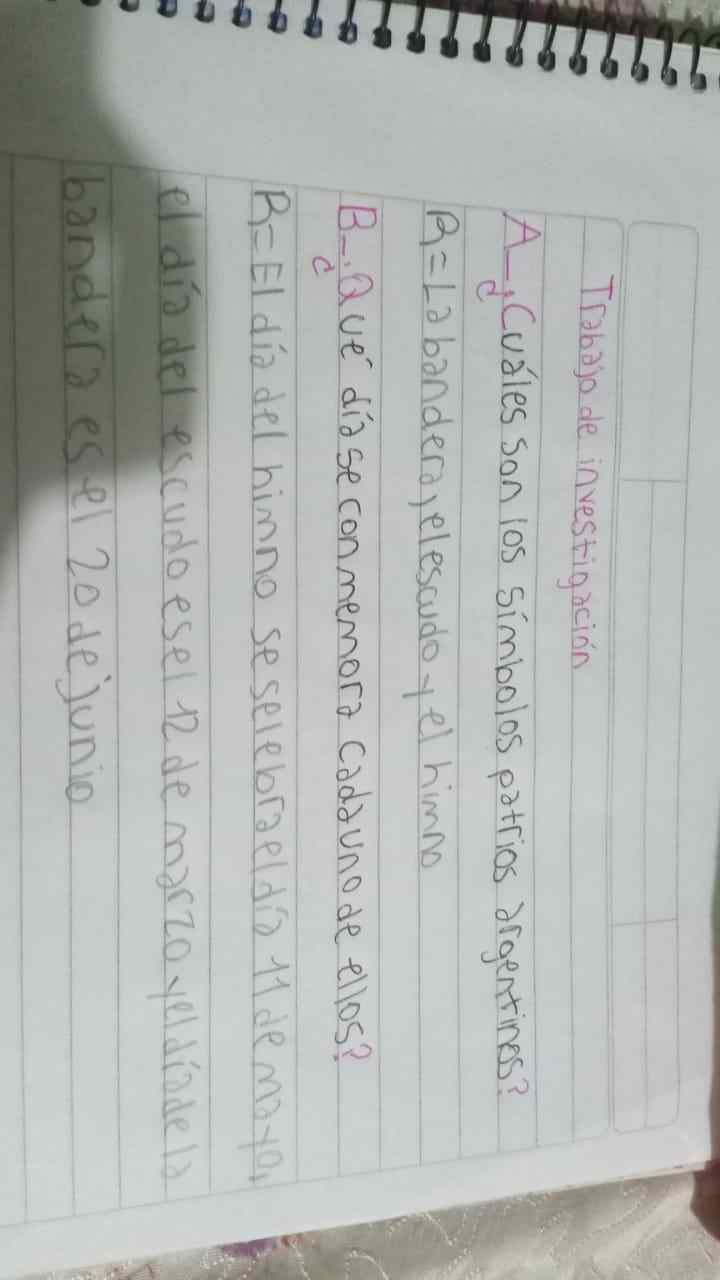 Trabajo de investigación
A_¿Cuáles son los símbolos patrios argentinos?
R=La bandera, el escudo y el himno
B_¿Qué día se conmemora cada uno de ellos?
R=El día del himno se selebra el día 11 de mayo,
el día del escudo es el 12 de marzo y el día de la
bandera es el 20 de junio